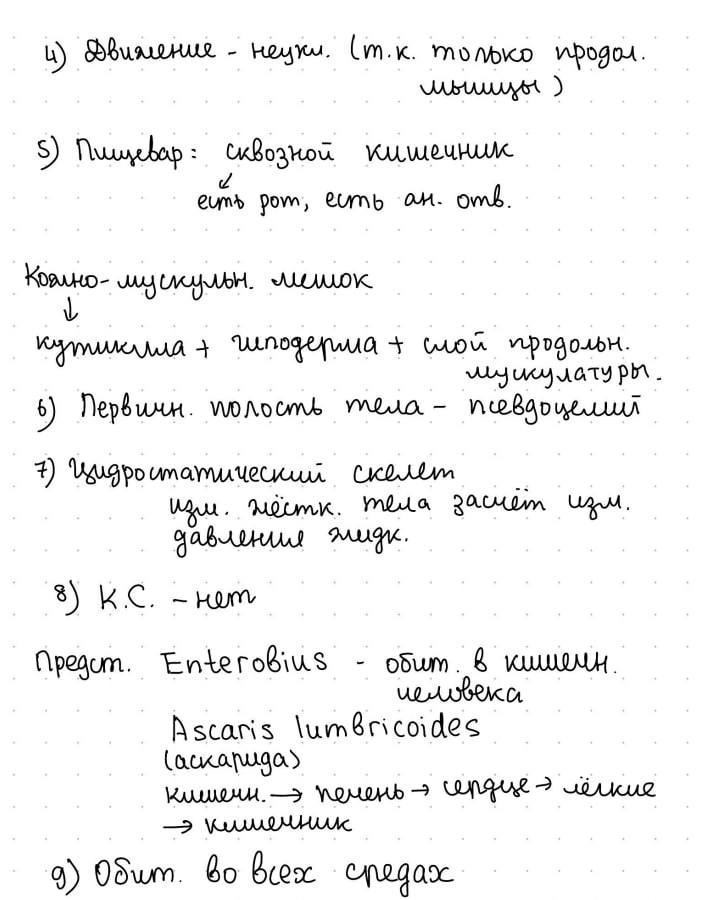 4) Движение - неуки. (т.к. только продол.
мышцы)
5) Пищевар: сквозной кишечник
↓
есть рот, есть ан. отв.
Кожно-мускульн. мешок
↓
кутикула + гиподерма + слой продольн.
мускулатуры.
6) Первичн. полость тела - псевдоцелий
7) Гидростатический скелет
изм. жёстк. тела засчёт изм.
давления жидк.
8) К.С. - нет
Предст. Enterobius - обит. в кишечн.
человека
Ascaris lumbricoides
(аскарида)
кишечн. → печень → сердце → лёгкие
→ кишечник
9) Обит. во всех средах